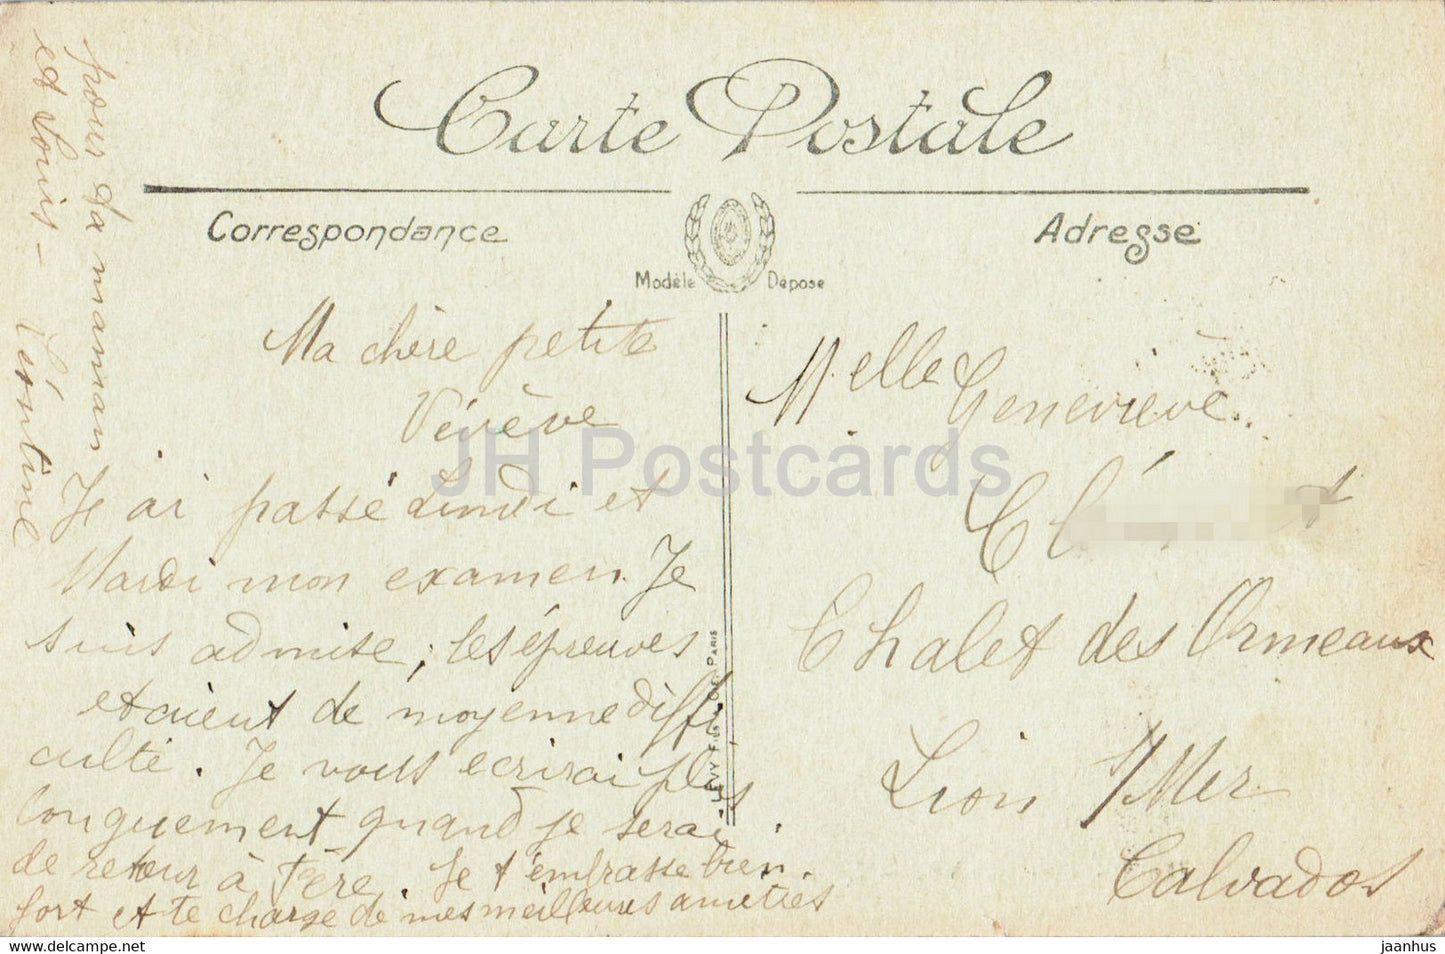 Carte Postale
Correspondance
Adresse
Modèle Déposé
Ma chère petite
Vévève
Je ai passé Lundi et
Mardi mon examen. Je
suis admise, les épreuves
etaient de moyenne diffi
culté. Je vous ecrirai plus
longuement quand je serai
de retour à Fère. Je t'embrasse bien
fort et te charge de mes meilleures amitiés
pour ta maman
et Louis -
Léontine
Melle Geneviève
Chalet des Ormeaux
Lion s/Mer
Calvados
LEVY FILS & CIE PARIS
JH Postcards
www.delcampe.net
jaanhus